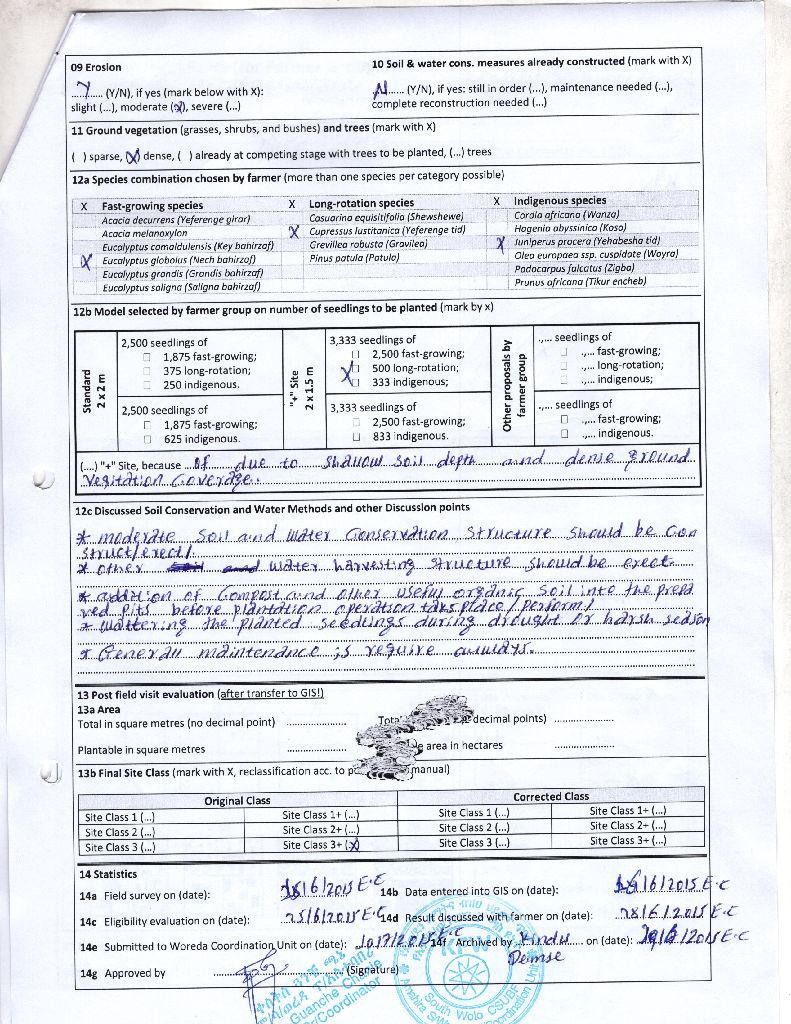 09 Erosion
10 Soil & water cons. measures already constructed (mark with X)
Y (Y/N), if yes (mark below with X):
slight (...), moderate (X), severe (...)
N (Y/N), if yes: still in order (...), maintenance needed (...),
complete reconstruction needed (...)
11 Ground vegetation (grasses, shrubs, and bushes) and trees (mark with X)
( ) sparse, (X) dense, ( ) already at competing stage with trees to be planted, (...) trees
12a Species combination chosen by farmer (more than one species per category possible)
X Fast-growing species
Acacia decurrens (Yeferenge girar)
Acacia melanoxylon
Eucalyptus camaldulensis (Key bahirzaf)
X Eucalyptus globolus (Nech bahirzaf)
Eucalyptus grandis (Grandis bahirzaf)
Eucalyptus saligna (Saligna bahirzaf)
X Long-rotation species
Casuarina equisitifolia (Shewshewe)
X Cupressus lustitanica (Yeferenge tid)
Grevillea robusta (Gravilea)
Pinus patula (Patula)
X Indigenous species
Cordia africana (Wanza)
Hagenia abyssinica (Koso)
X Juniperus procera (Yehabesha tid)
Olea europaea ssp. cuspidate (Wayra)
Podocarpus falcatus (Zigba)
Prunus africana (Tikur encheb)
12b Model selected by farmer group on number of seedlings to be planted (mark by x)
Standard
2 x 2 m
2,500 seedlings of
☐ 1,875 fast-growing;
☐ 375 long-rotation;
☐ 250 indigenous.
2,500 seedlings of
☐ 1,875 fast-growing;
☐ 625 indigenous.
"+" Site
2 x 1.5 m
3,333 seedlings of
☐ 2,500 fast-growing;
X 500 long-rotation;
☐ 333 indigenous;
3,333 seedlings of
☐ 2,500 fast-growing;
☐ 833 indigenous.
Other proposals by
farmer group
.,... seedlings of
☐ .,... fast-growing;
☐ .,... long-rotation;
☐ .,... indigenous;
.,... seedlings of
☐ .,... fast-growing;
☐ .,... indigenous.
(....) "+" Site, because of due to shallow soil depth and dense ground
vegitation coverage.
12c Discussed Soil Conservation and Water Methods and other Discussion points
* moderate soil and water conservation structure should be con
struct/erect/
* other and water harvesting structure should be erect.
* addition of compost and other useful organic soil into the prepa
red pits before plantation operation taks place/perform/
* wattering the planted seedlings during drought or harsh season
* Generall maintenance is require allways.
13 Post field visit evaluation (after transfer to GIS!)
13a Area
Total in square metres (no decimal point) ..................
decimal points) ..................
Plantable in square metres ..................
area in hectares ..................
13b Final Site Class (mark with X, reclassification acc. to manual)
Original Class
Corrected Class
Site Class 1 (...) Site Class 1+ (...) Site Class 1 (...) Site Class 1+ (...)
Site Class 2 (...) Site Class 2+ (...) Site Class 2 (...) Site Class 2+ (...)
Site Class 3 (...) Site Class 3+ (X) Site Class 3 (...) Site Class 3+ (...)
14 Statistics
14a Field survey on (date): /6/2015 E.C
14b Data entered into GIS on (date): /6/2015 E.C
14c Eligibility evaluation on (date): 25/6/2015 E.C
14d Result discussed with farmer on (date): 28/6/2015 E.C
14e Submitted to Woreda Coordination Unit on (date): /7/2015 E.C
14f Archived by Kindu Demse on (date): /2015 E.C
14g Approved by (Signature)
Guanche Cherie
Coordinator
KFW
South Wolo CSUBF
Coordination Unit